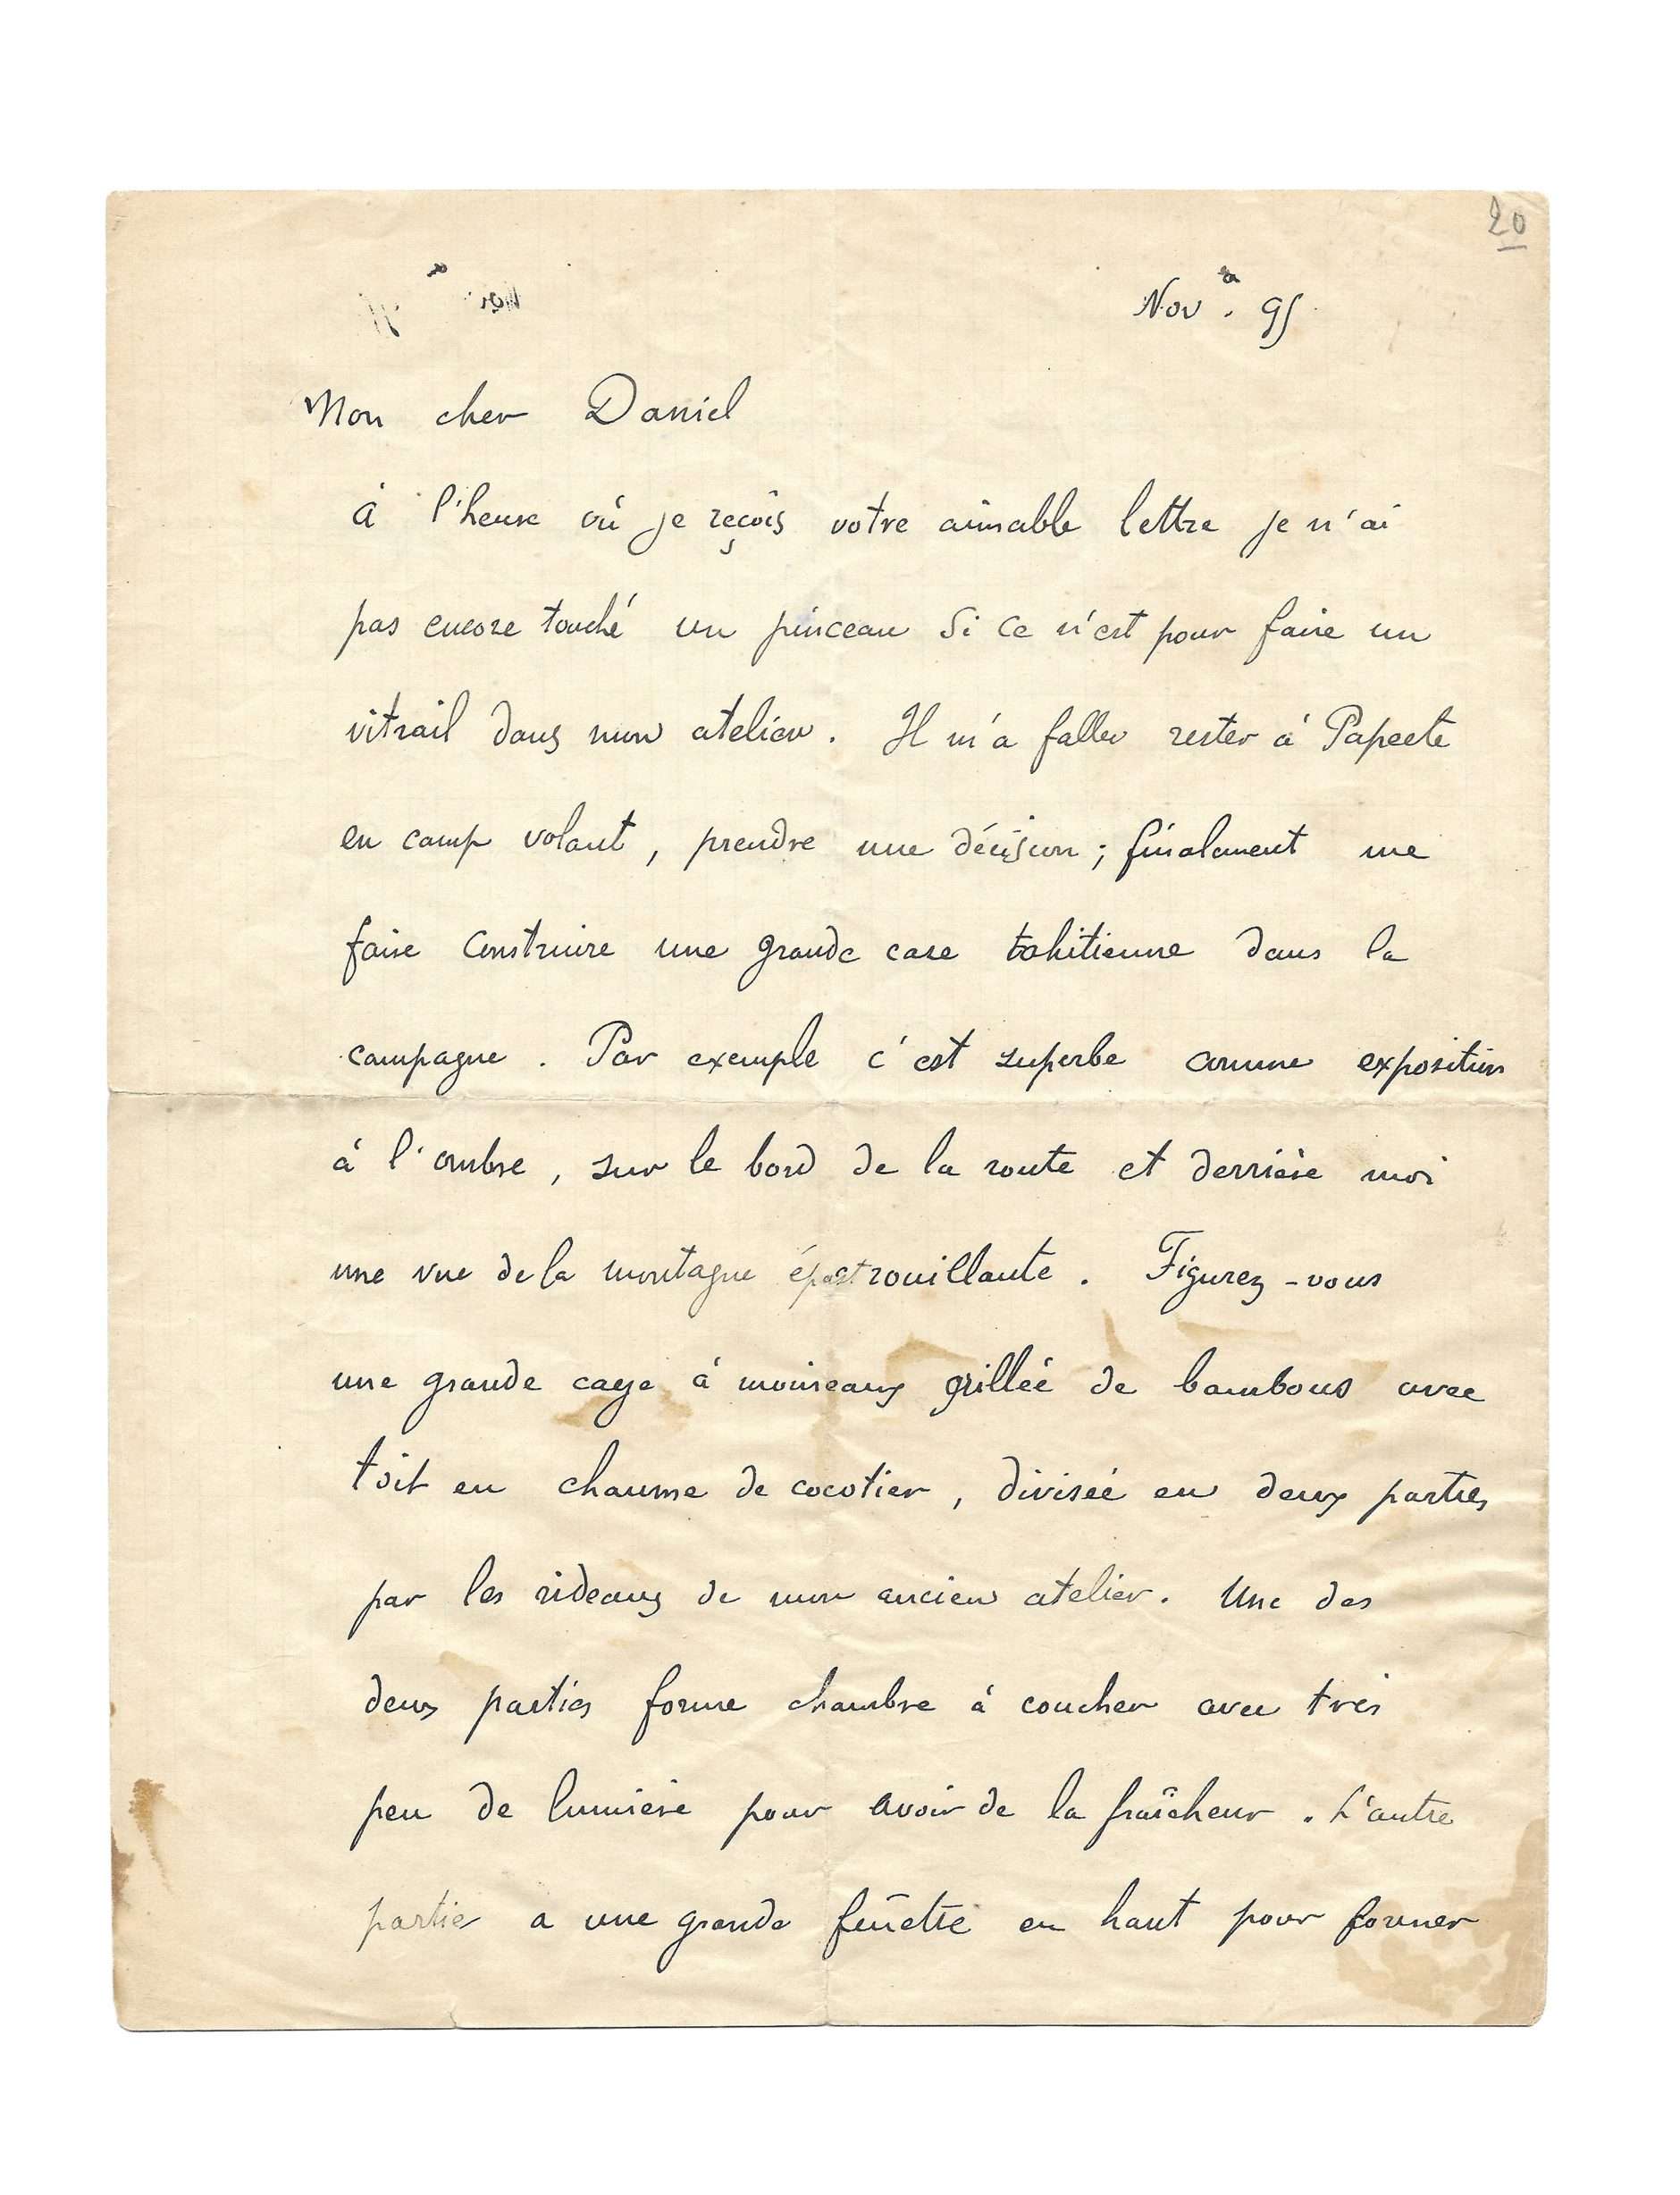 20
Nov. 95
Mon cher Daniel
à l'heure où je reçois votre aimable lettre je n'ai
pas encore touché un pinceau si ce n'est pour faire un
vitrail dans mon atelier. Il m'a fallu rester à Papeete
en camp volant, prendre une décision ; finalement me
faire construire une grande case tahitienne dans la
campagne. Par exemple c'est superbe comme exposition
à l'ombre, sur le bord de la route et derrière moi
une vue de la montagne épastrouillante. Figurez-vous
une grande cage à moineaux grillée de bambous avec
toit en chaume de cocotier, divisée en deux parties
par les rideaux de mon ancien atelier. Une des
deux parties forme chambre à coucher avec très
peu de lumière pour avoir de la fraîcheur. L'autre
partie a une grande fenêtre en haut pour former